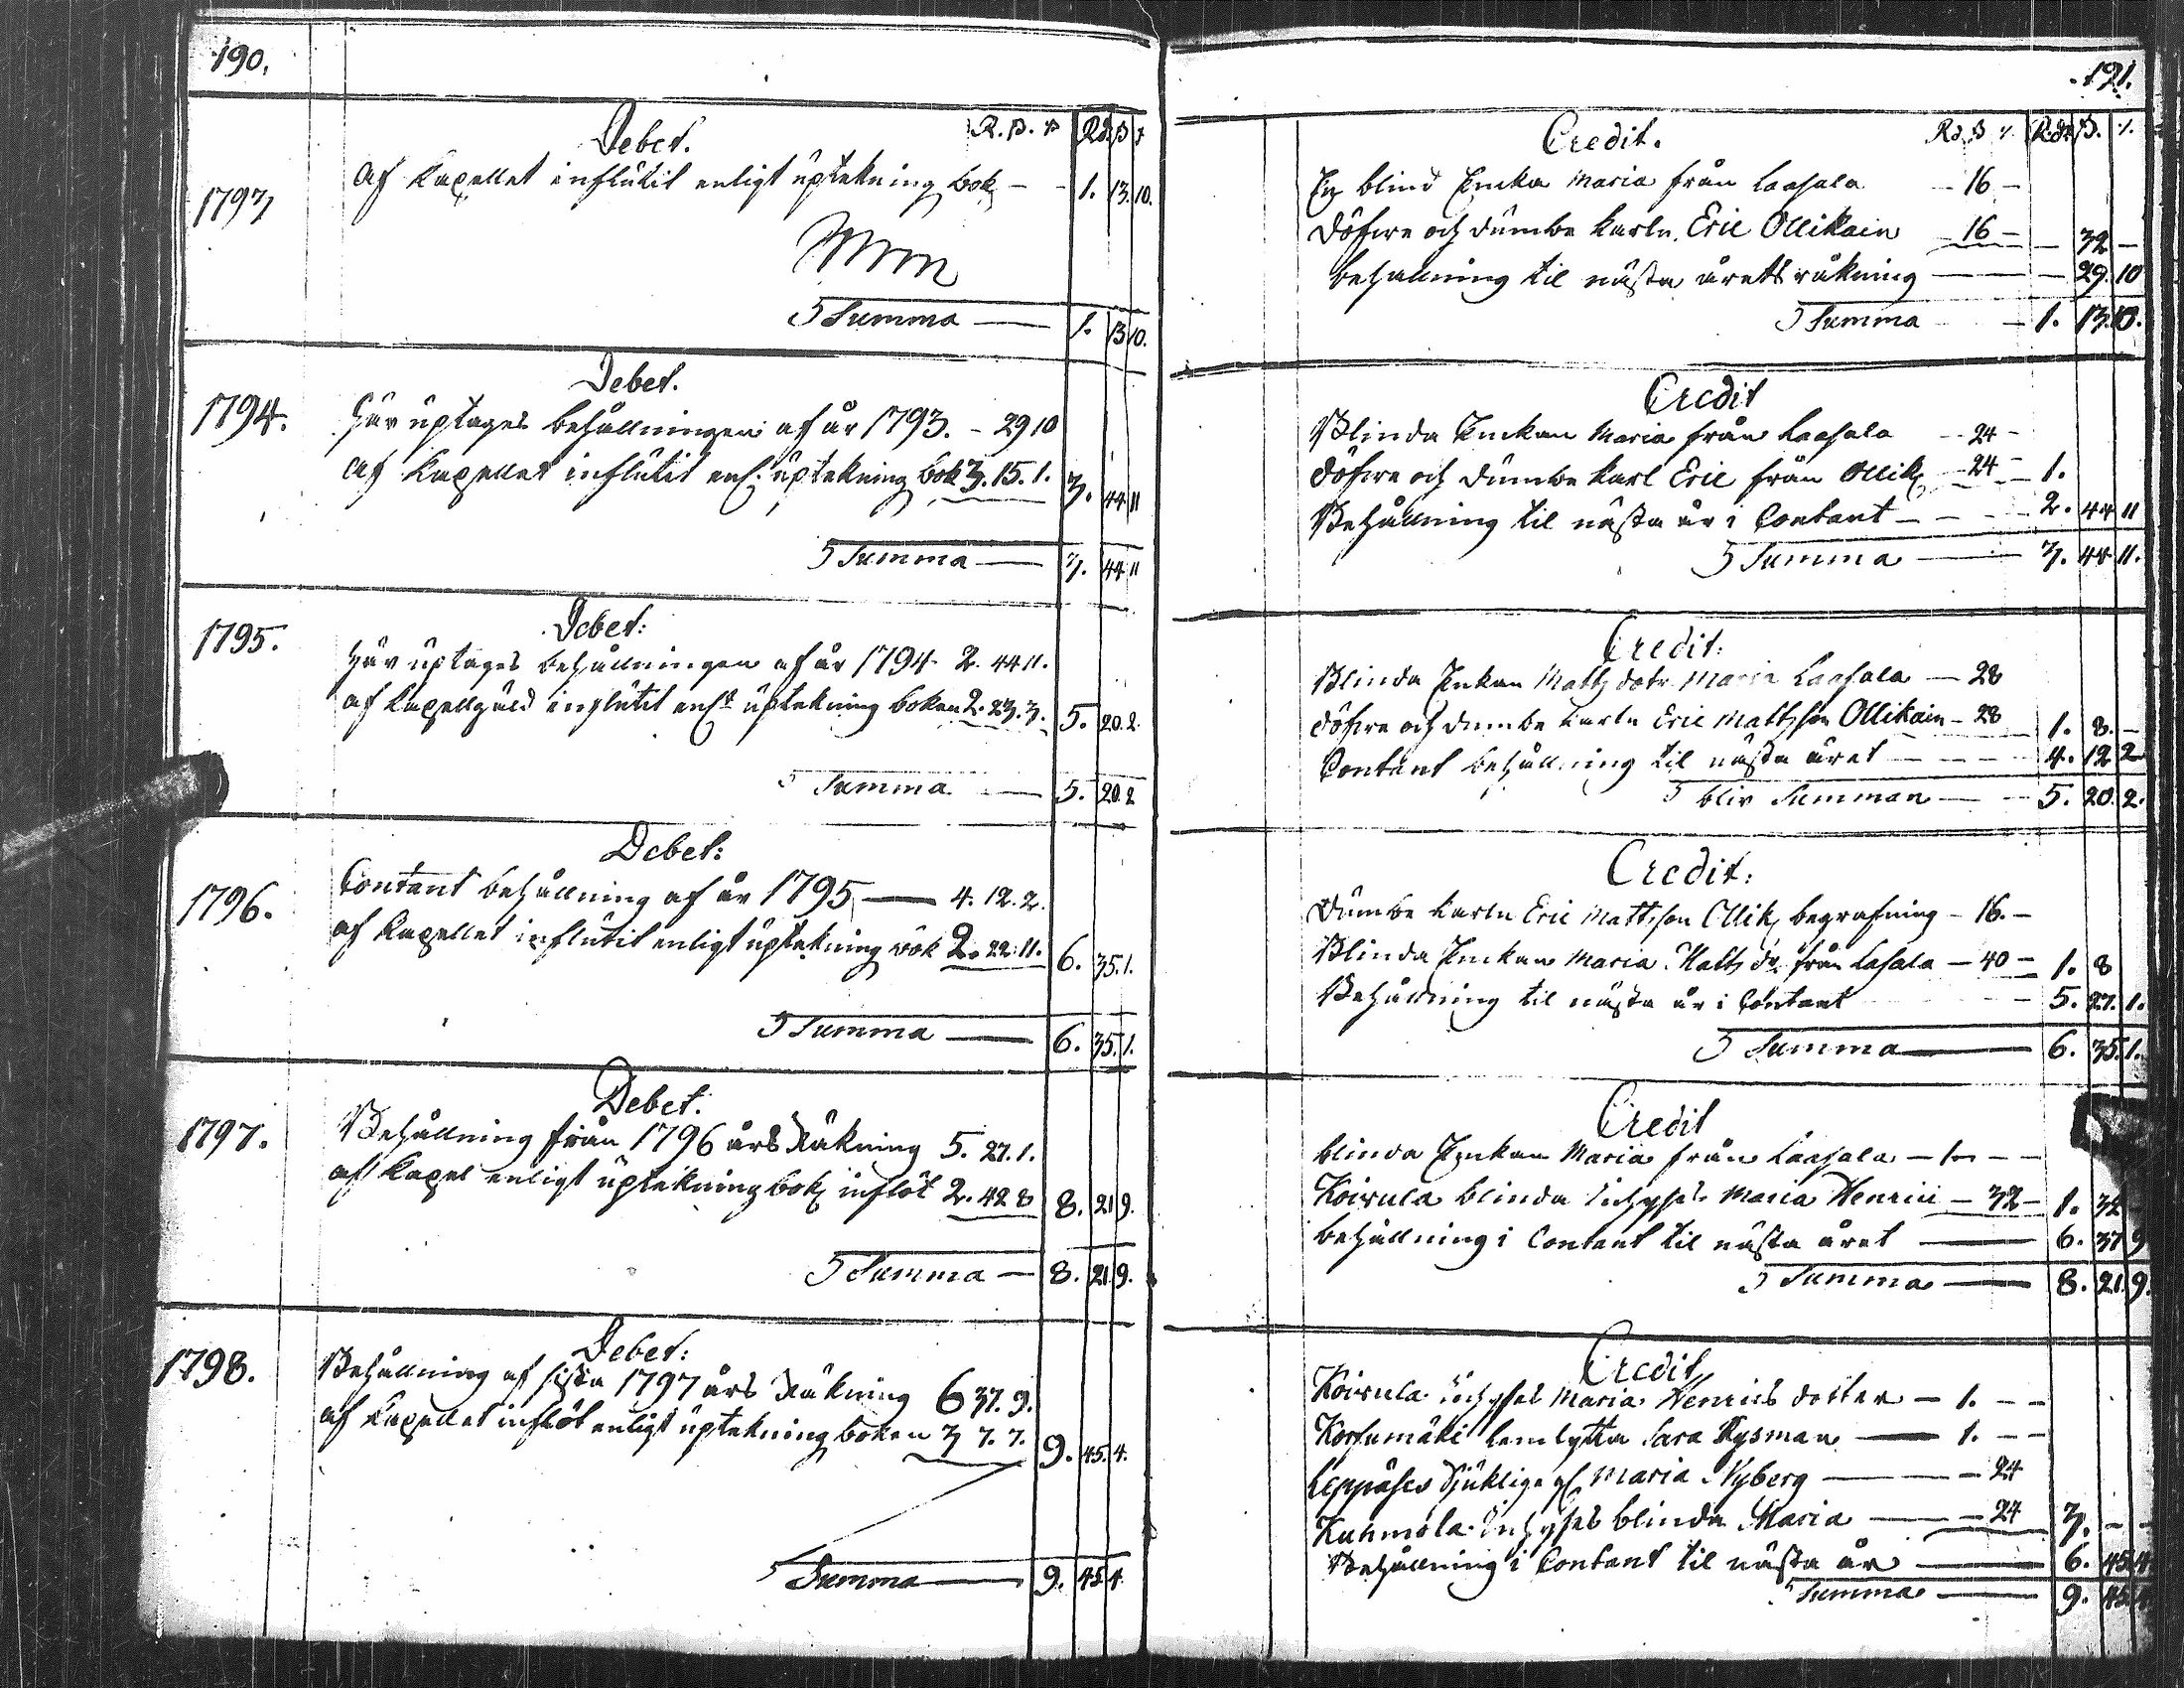 190.
Debet. R. ß. Rd ß
1793 Af Kapellet influtit enligt uptekning bok – 1. 13. 10.
Summa — 1. 13 10.
Debet.
1794. Här uptages behållningen af år 1793. – 29 10
Af Kapellet influtit enl. uptekning bok 3. 15. 1. 3. 44 11
Summa — 3. 44 11
Debet:
1795. Här uptages behållningen af år 1794 2. 44 11.
af Kapellgåld influtit enl.t uptekning boken 2. 23. 3. 5. 20. 2
Summa — 5. 20. 2
Debet:
1796. Contant behållning af år 1795 — 4. 12. 2.
af Kapellet influtit enligt uptekning bok 2. 22. 11. 6. 35. 1.
Summa — 6. 35. 1.
Debet.
1797. Behållning från 1796 års Räkning 5. 27. 1.
af Kapel enligt uptekning bok inflöt 2. 42 8 8. 21 9.
Summa — 8. 21. 9.
Debet:
1798. Behållning af sista 1797 års Räkning 6 37. 9.
af Kapellet inflöt enligt uptekning boken 3 7. 7. 9. 45. 4.
Summa — 9. 45 4
191.
Credit. Rd. ß Rd. ß.
En blind Enka Maria från Laasala – 16 –
Döfwe och dumbe karln Eric Ollikain – 16 – – 32 –
behållning til nästa årets räkning — – 29. 10
Summa – 1. 13. 10.
Credit
Blinda Enkan Maria från Laasala – 24 –
döfwe och dumbe karl Eric från Ollik – 24 – 1.
Behållning til nästa år i Contant – – – 2. 44 11
Summa — 3. 44 11.
Credit:
Blinda Enkan Matts dotr Maria Laasala — 28
döfwe och dumbe karln Eric Mattsson Ollikain – 28 1. 8. –
Contant behållning til nästa året – – – 4. 12 2
blir Summan — 5. 20. 2.
Credit:
Dumbe karln Eric Mattsson Ollik begrafning – 16. –
Blinda Enkan Maria Matts dr från Lasala – 40 – 1. 8
Behållning til nästa år i Contant – 5. 27. 1.
Summa — 6. 35. 1.
Credit
blinda Enkan Maria från Laasala – 1 – –
Koivula blinda Inhyses Maria Henrici – 32 – 1. 32
behållning i Contant til nästa året — 6. 37 9
Summa — 8. 21. 9.
Credit
Koivula Inhyses Maria Henrics dotter – 1. – –
Korsumäki Sara Rysman — 1. – –
Leppäses Sjuklige Maria Nyberg — – 24
Kuhmola Inhyses blinda Maria — – 24 3. – –
Behållning i Contant til nästa år — 6. 45 4
Summa — 9. 45. 4